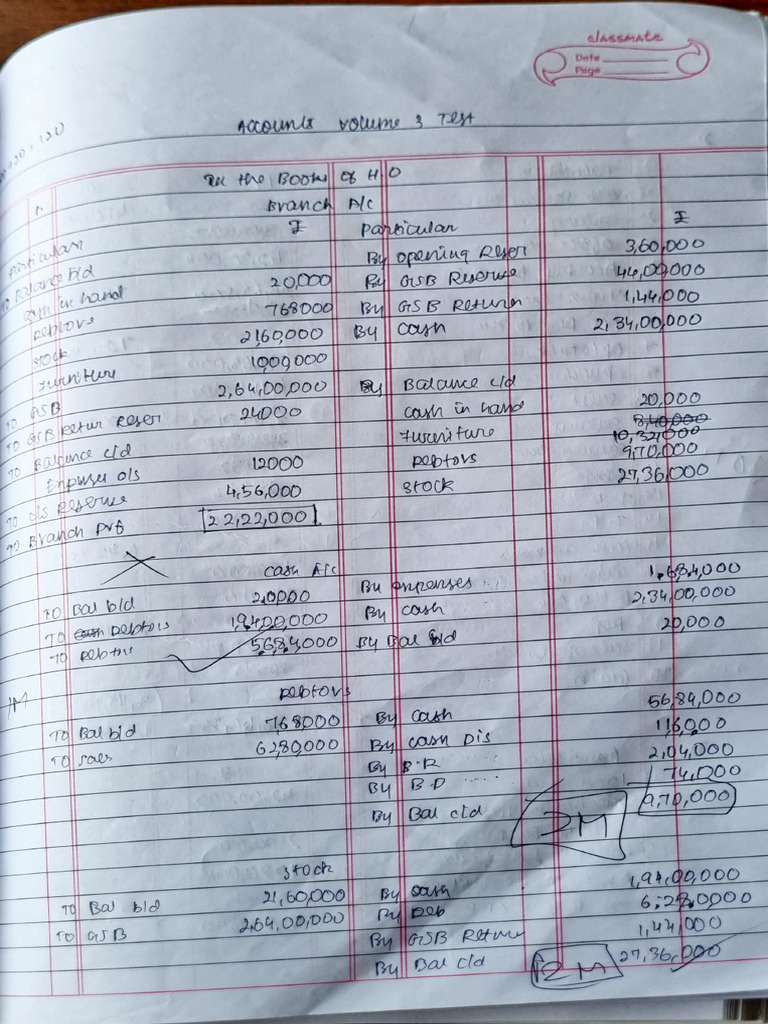 classmate
Date
Page
Accounts Volume 3 Test
In the Books of H.O
Branch A/c
Particulars ₹ Particular ₹
To Balance b/d By opening Reser 3,60,000
cash in hand 20,000 By GSB Reserve 44,00,000
Debtors 768000 By GSB Return 1,44,000
Stock 2160,000 By Cash 2,34,00,000
Furniture
To GSB 2,64,00,000 By Balance c/d
To GSB Retur Reser 24000 cash in hand 20,000
To Balance c/d Furniture
Expense o/s 12000 Debtors 9,70,000
To c/s Reserve 4,56,000 Stock 27,36,000
To Branch Prf 22,22,000
Cash A/c
To Bal b/d 20,000 By expenses 1,684,000
To Debtors By cash 2,34,00,000
To Debtors 5684,000 By Bal 20,000
1M
Debtors
To Bal b/d 768,000 By cash 56,84,000
To sales 6280,000 By cash Dis 116,000
By B.R 2,04,000
By B.D 74,000
By Bal c/d 9,70,000
2M
Stock
To Bal b/d 21,60,000 By cash 1,94,00,000
To GSB 2,64,00,000 By Deb 6,280,000
By GSB Return 1,44,000
By Bal c/d 2M 27,36,000